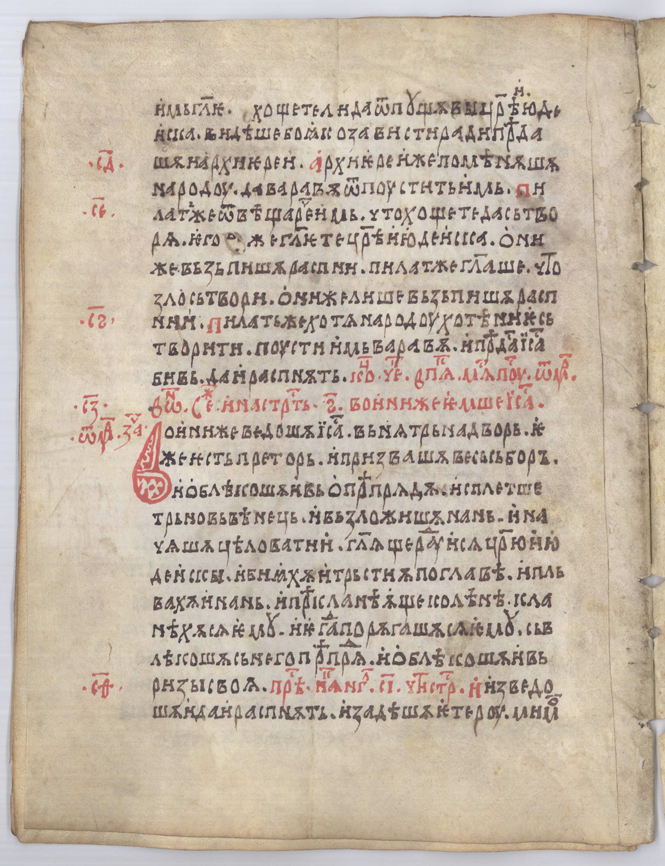 имь глѥ. хощете ли да ѿпꙋщѫ вы цр҃ѣ июде
иска. вѣдѣше бо ꙗко зависти ради прѣда
·с҃д· шѧ и архиѥреи. архиѥреи же поменѫшѧ
народоу. да варавѫ ѿпоустить имь. пи
·с҃е· лат же ѿвѣщавь реч имь. что хощете да сътво
рѫ. ѥго же глѥте цр҃ѣ июдеиска. ѡни
же възьпишѧ распни. пилат же гл҃аше. что
зло сътвори. ѡни же лише възьпишѧ расп
·с҃ꙅ· ни и. пилать же хотѧ народоу хотѣниѥ сь
творити. поусти имь варавѫ. и прѣда іс҃а
бивь. да и распнѫть.
·с҃з· воини же ѥмше іс҃а.
воини же ведошѧ іс҃а. вънѫтрь на дворь. ѥ
же ѥсть преторь. и призвашѧ весь сьборъ.
и ѡблѣкошѧ и вь прѣпрѫдѫ. и сплетше
трьновь вѣнець. и възложишѧ нань. и на
чѧшѧ цѣловати и. глѧще радꙋи сѧ цр҃ю ию
деискы. и биꙗхѫ и трьстиѫ по главѣ. и пль
вахѫ нань. и прѣкланѣѫще колѣнѣ. кла
нѣхѫ сѧ ѥмꙋ. и ѥгда порѫгашѧ сѧ ѥмꙋ. сьв
лѣкошѧ сь него прѣпрѫдѫ. и ѡблѣкошѧ и вь
·с҃ѳ· ризы своѧ. и изведо
шѧ и да и распнѫть. и задѣшѧ ѥтероу. мимо